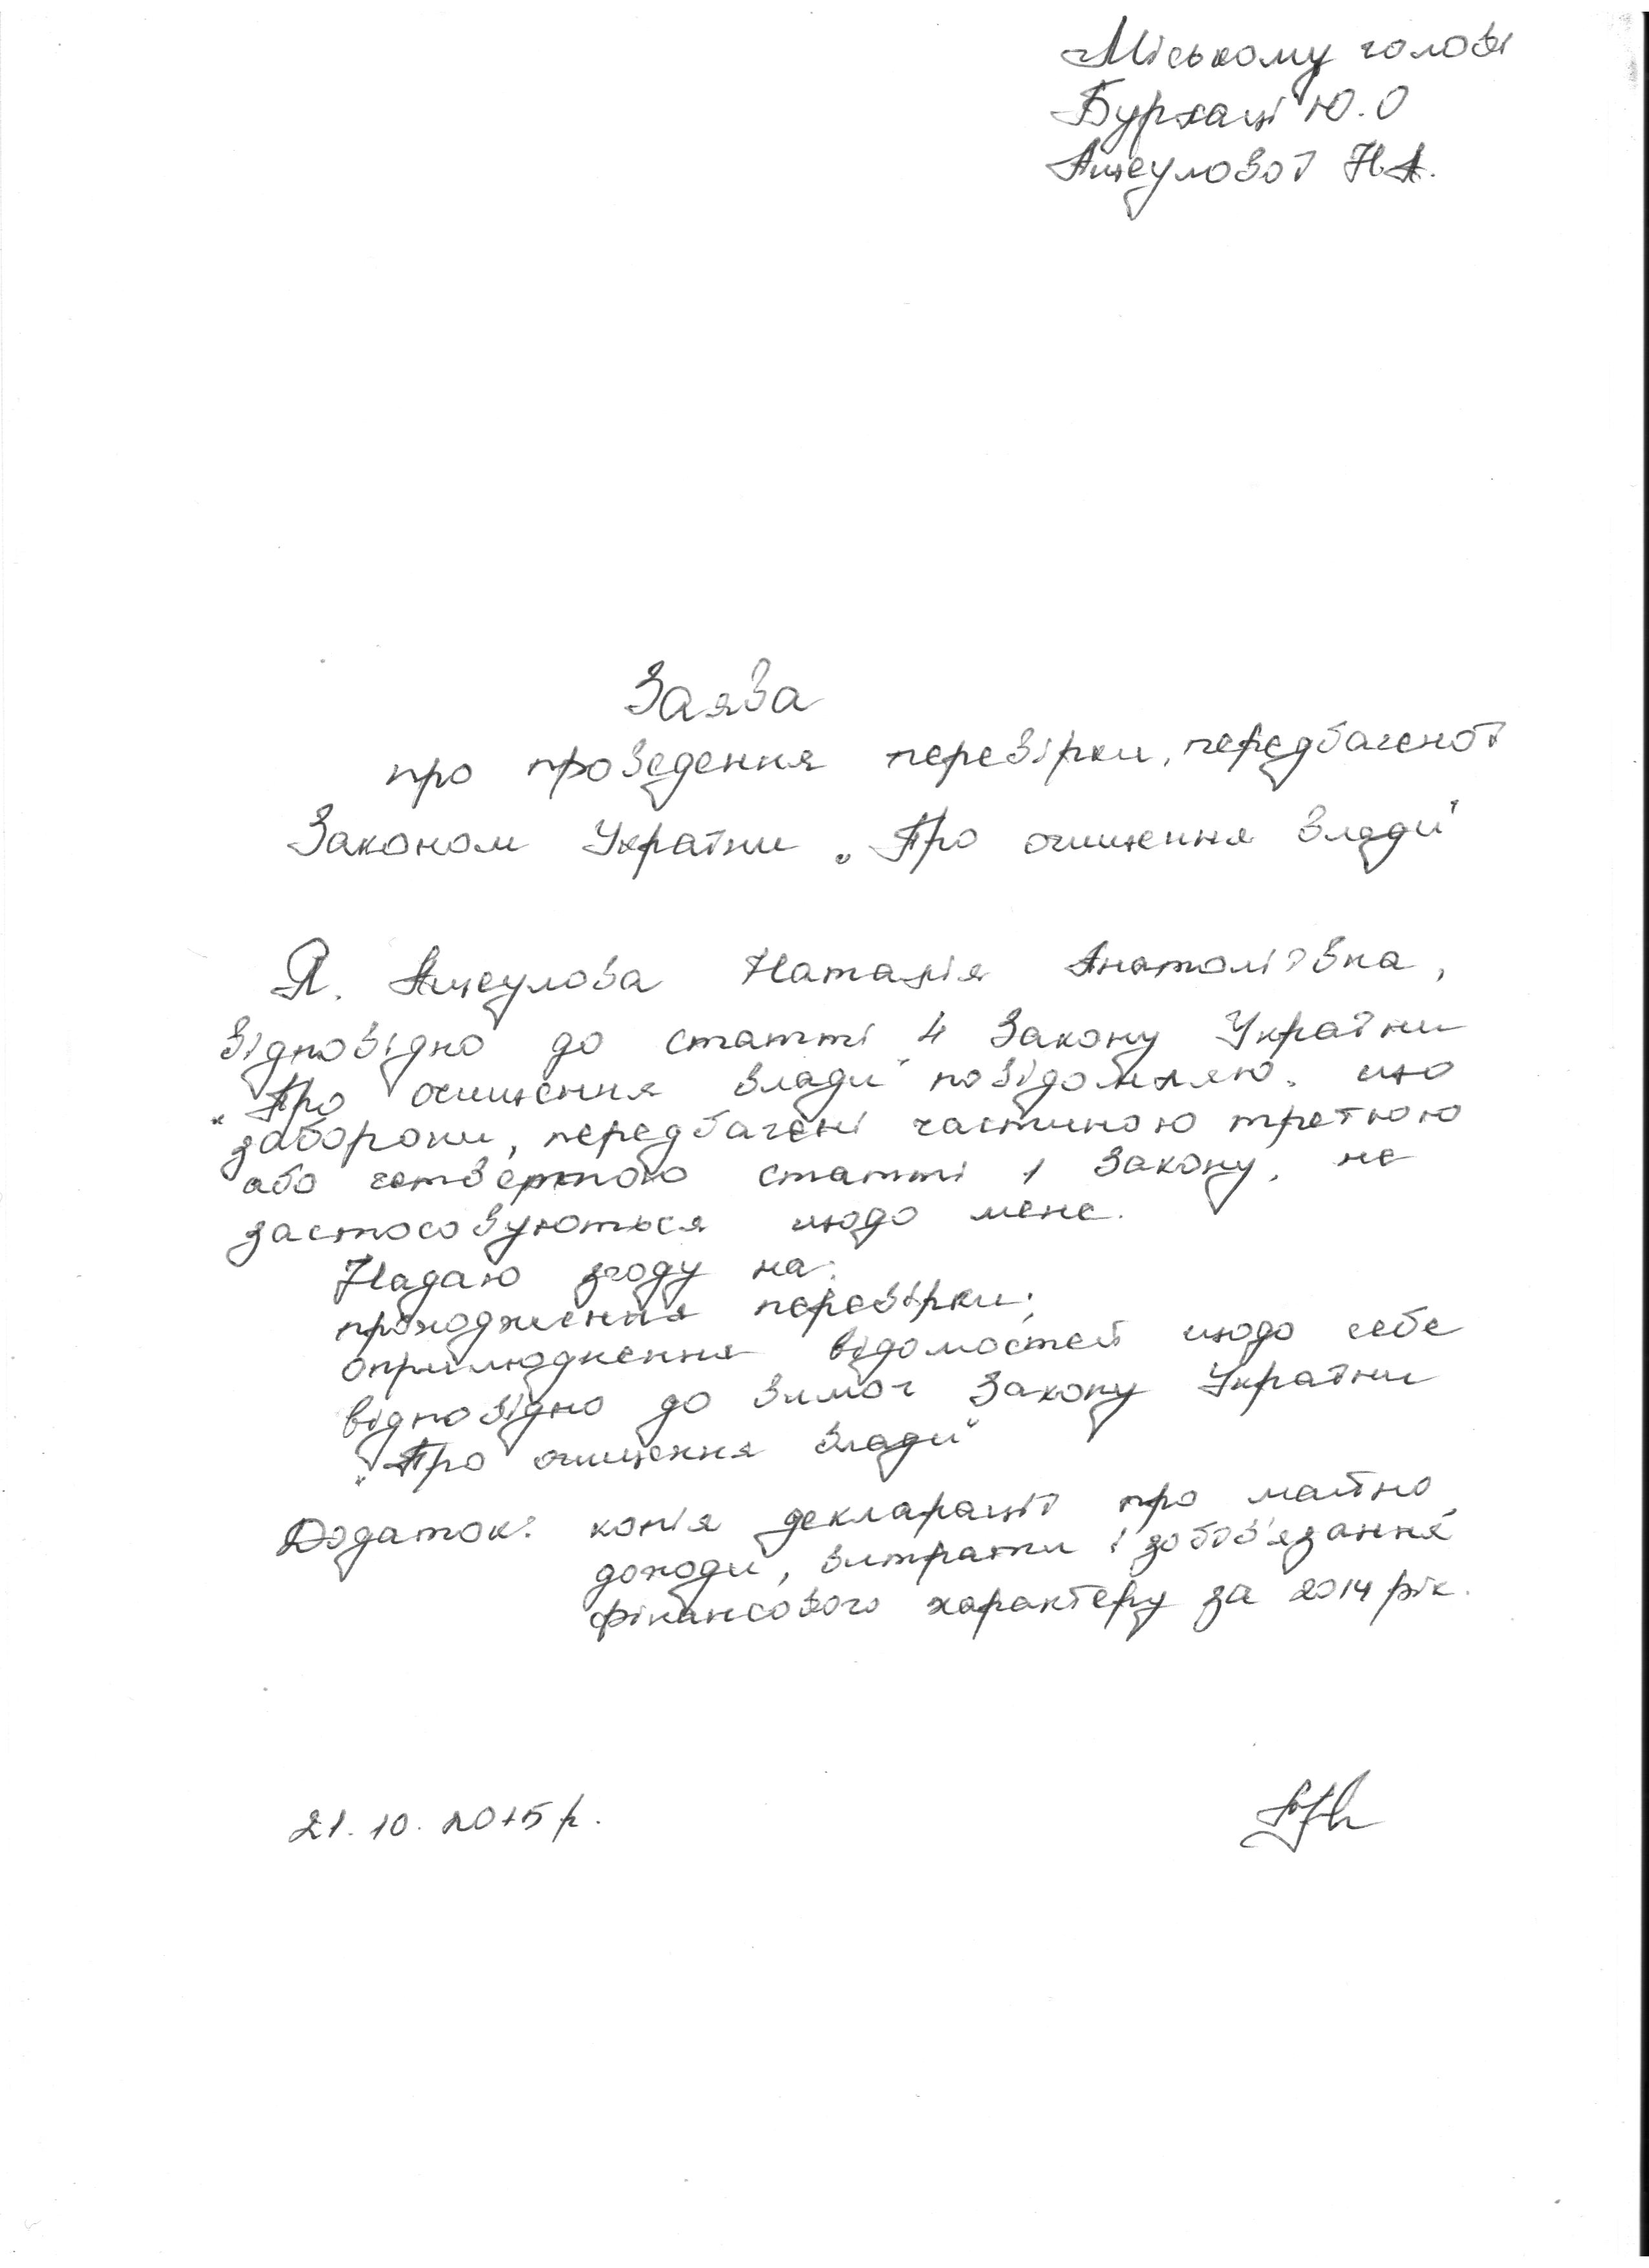 Міському голові
Бурхаці Ю.О
Ащеулової Н.А.
Заява
про проведення перевірки, передбаченої
Законом України „Про очищення влади"
Я, Ащеулова Наталія Анатоліївна,
відповідно до статті 4 Закону України
„Про очищення влади" повідомляю, що
заборони, передбачені частиною третьою
або четвертою статті 1 Закону, не
застосовуються щодо мене.
Надаю згоду на:
проходження перевірки;
оприлюднення відомостей щодо себе
відповідно до вимог Закону України
„Про очищення влади"
Додаток: копія декларації про майно,
доходи, витрати і зобов'язання
фінансового характеру за 2014 рік.
21.10.2015 р.